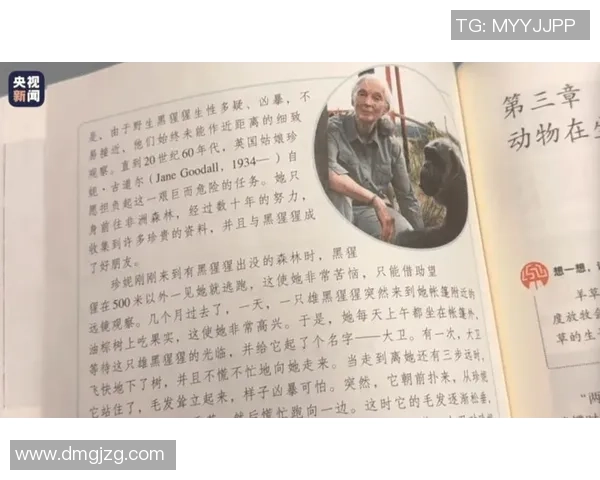 TG: MYYJJPP
央视
新闻
是，由于野生黑猩猩生性多疑、凶暴，不
易接近，他们始终未能作近距离的细致
观察。直到20世纪60年代，英国姑娘珍
妮·古道尔（Jane Goodall，1934—）自
愿担负起这一艰巨而危险的任务。她只
身前往非洲森林，经过数十年的努力，
收集到许多珍贵的资料，并且与黑猩猩成
了好朋友。
珍妮刚刚来到有黑猩猩出没的森林时，黑猩
猩在500米以外一见她就逃跑，这使她非常苦恼，只能借助望
远镜观察。几个月过去了，一天，一只雄黑猩猩突然来到她帐篷附近的
油棕树上吃果实，这使她非常高兴。于是，她每天上午都坐在帐篷外，
等待这只雄黑猩猩的光临，并给它起了个名字——大卫。有一次，大卫
飞快地下了树，并且不慌不忙地向她走来。当走到离她还有三步远时，
它站住了，毛发耸立起来，样子凶暴可怕。突然，它朝前扑来，从珍妮
然后慌忙跑向一边。这时它的毛发逐渐松垂，
第三章
动物在
想一想，
羊草
度放牧会
草的生
“两
www.dmgjzg.com